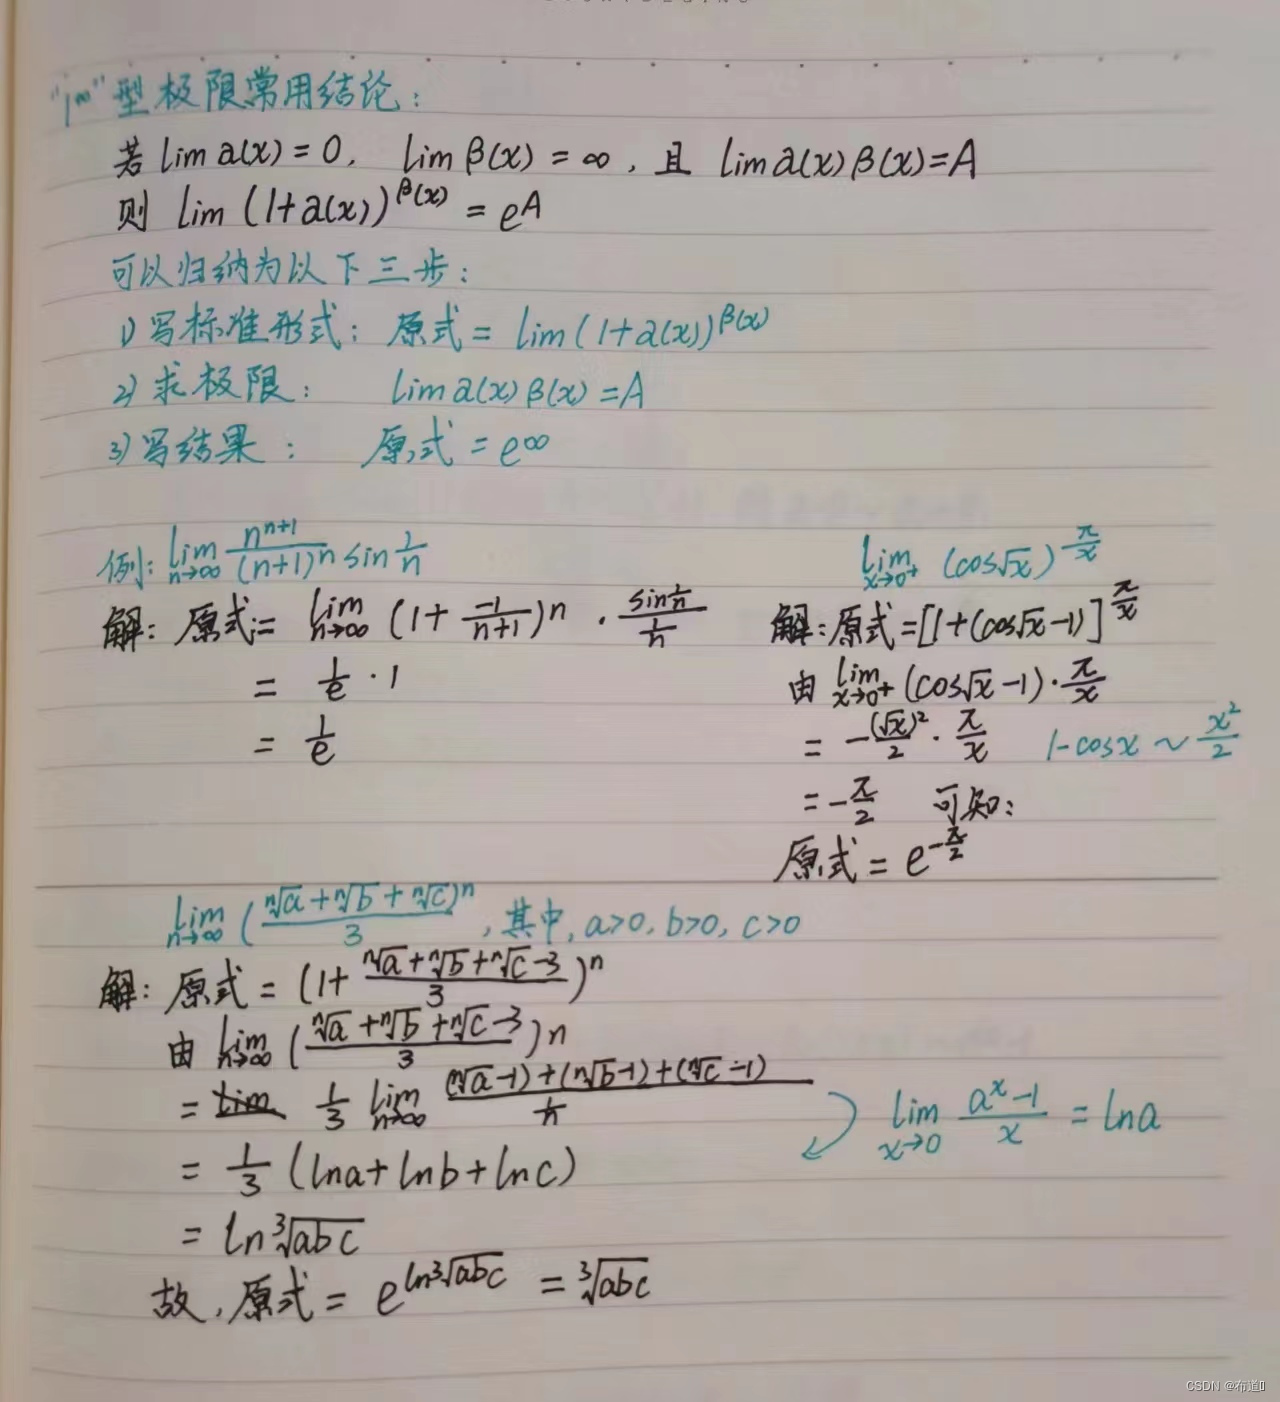 "1^∞"型极限常用结论：
若 lim a(x) = 0, lim β(x) = ∞, 且 lim a(x)β(x)=A
则 lim (1+a(x))^β(x) = e^A
可以归纳为以下三步：
1) 写标准形式：原式 = lim (1+a(x))^β(x)
2) 求极限： lim a(x)β(x) = A
3) 写结果： 原式 = e^∞
例: lim n→∞ n^(n+1)/(n+1)^n sin 1/n
解: 原式= lim n→∞ (1+ -1/(n+1))^n · (sin 1/n)/(1/n)
= 1/e · 1
= 1/e
lim x→0⁺ (cos√x)^(π/x)
解:原式=[1+(cos√x-1)]^(π/x)
由 lim x→0⁺ (cos√x-1)·π/x
= -(√x)²/2 · π/x 1-cosx ~ x²/2
= -π/2 可知:
原式 = e^(-π/2)
lim n→∞ ((ⁿ√a+ⁿ√b+ⁿ√c)/3)^n, 其中, a>0, b>0, c>0
解: 原式 = (1+ (ⁿ√a+ⁿ√b+ⁿ√c-3)/3)^n
由 lim n→∞ ((ⁿ√a+ⁿ√b+ⁿ√c-3)/3)n
= 1/3 lim n→∞ ((ⁿ√a-1)+(ⁿ√b-1)+(ⁿ√c-1))/(1/n)
lim x→0 (a^x-1)/x = lna
= 1/3 (lna+lnb+lnc)
= ln³√abc
故, 原式 = e^(ln³√abc) = ³√abc
CSDN @布道